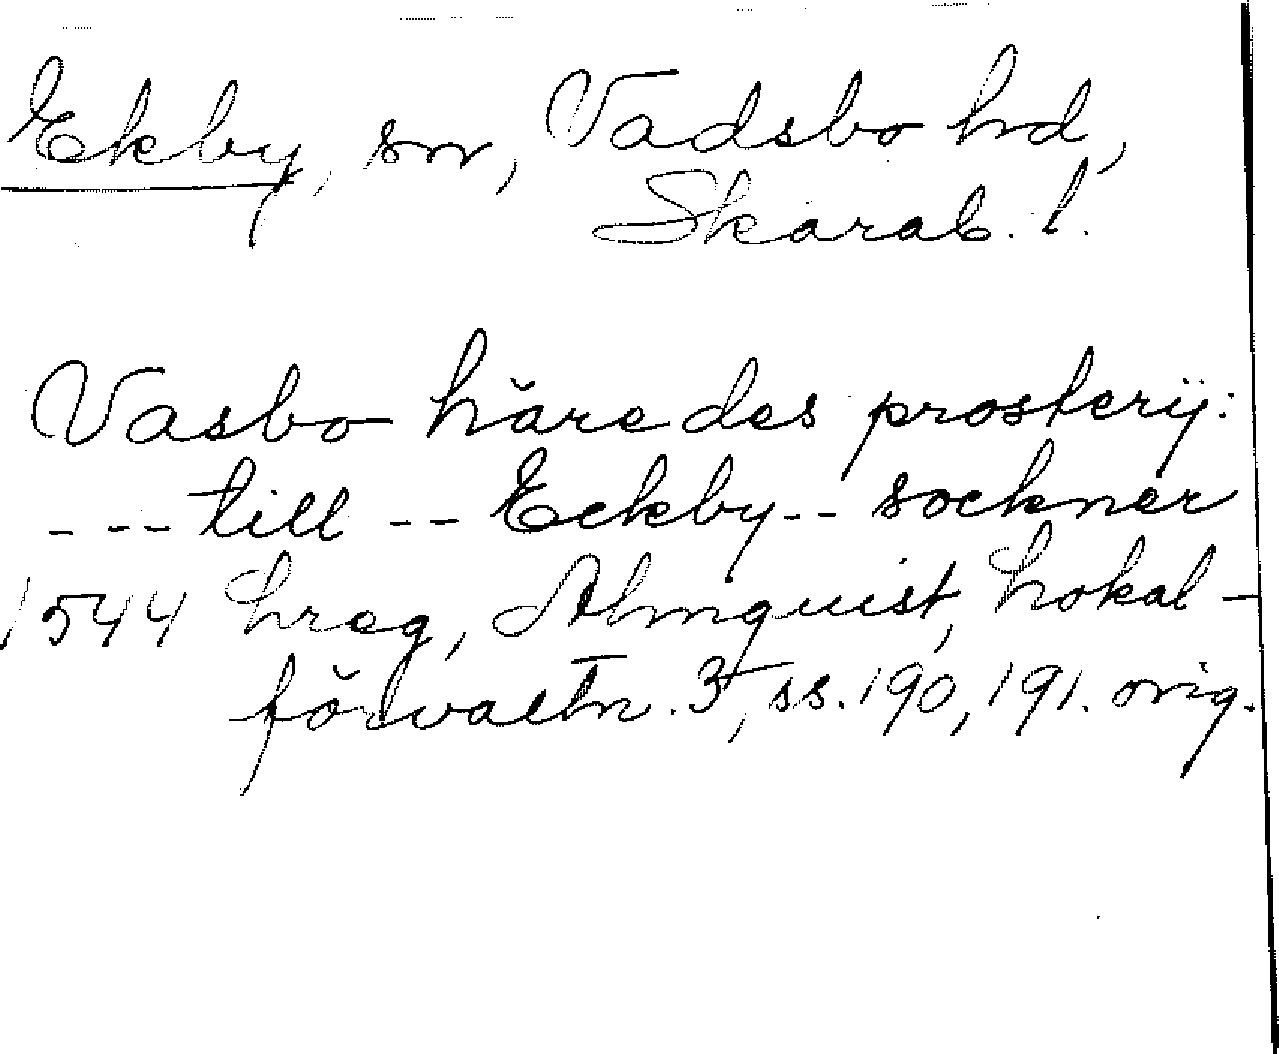 Ekby, sn, Vadsbo hd,
Skarab. l.
Vasbo häredes prosterij:
- --- till -- Eckby -- sockner
1544 Lreg, Almquist, Lokal-
förvaltn. 3, ss. 190, 191. orig.